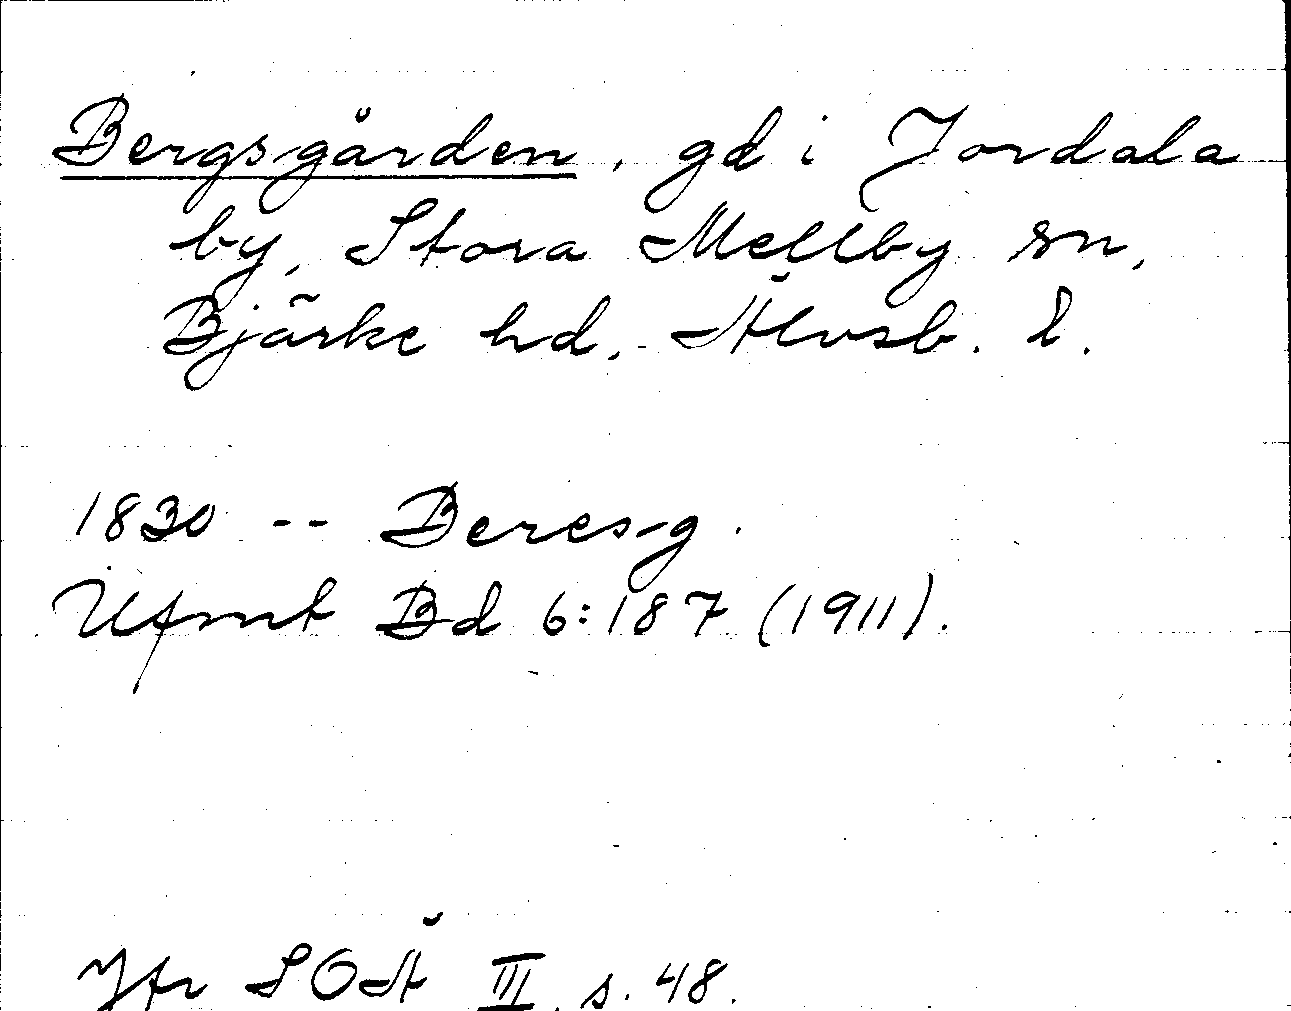 Bergsgården, gd i Jordala
by, Stora Mellby sn,
Bjärke hd, Älvsb. l.
1830 -- Beresg.
Ufmt Bd 6:187 (1911).
Jfr SOÄ III, s. 48.